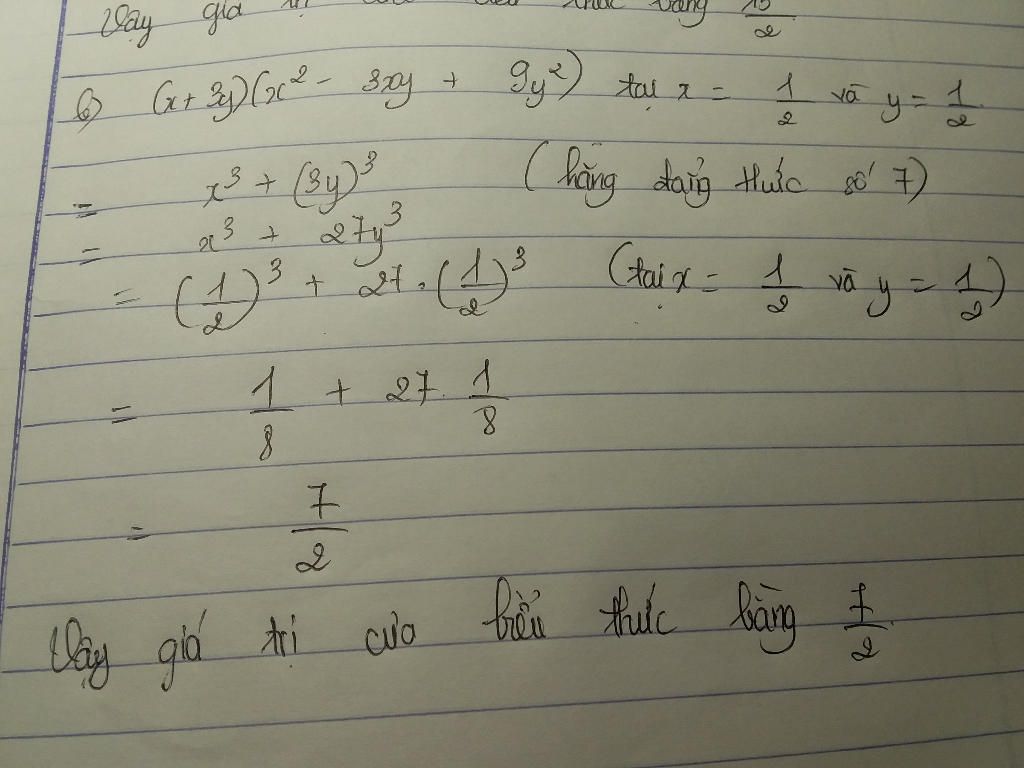 Vậy giá trị của biểu thức bằng 15/2
6) (x + 3y)(x² - 3xy + 9y²) tại x = 1/2 và y = 1/2
= x³ + (3y)³ (hằng đẳng thức số 7)
= x³ + 27y³
= (1/2)³ + 27 . (1/2)³ (tại x = 1/2 và y = 1/2)
= 1/8 + 27 . 1/8
= 7/2
Vậy giá trị của biểu thức bằng 7/2